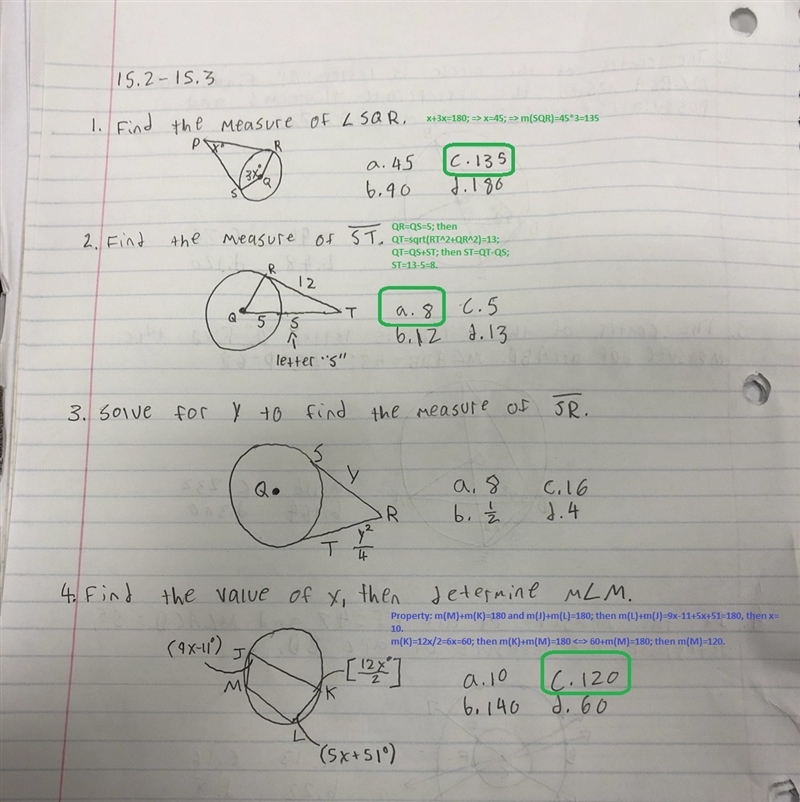 15.2-15.3
1. Find the Measure of ∠SQR.
x+3x=180; => x=45; => m(SQR)=45*3=135
P
x°
R
3x°
Q
S
a. 45 c. 135
b. 90 d. 180
2. Find the Measure of ST.
QR=QS=5; then
QT=sqrt(RT^2+QR^2)=13;
QT=QS+ST; then ST=QT-QS;
ST=13-5=8.
R
12
Q
5
S
T
letter "S"
a. 8 c. 5
b. 12 d. 13
3. Solve for y to find the measure of SR.
S
y
Q
R
T
y²/4
a. 8 c. 16
b. 1/2 d. 4
4. Find the value of x, then determine m∠M.
Property: m(M)+m(K)=180 and m(J)+m(L)=180; then m(L)+m(J)=9x-11+5x+51=180, then x=
10.
m(K)=12x/2=6x=60; then m(K)+m(M)=180 <=> 60+m(M)=180; then m(M)=120.
(9x-11°)
J
[12x°/2]
M
K
L
(5x+51°)
a. 10 c. 120
b. 140 d. 60